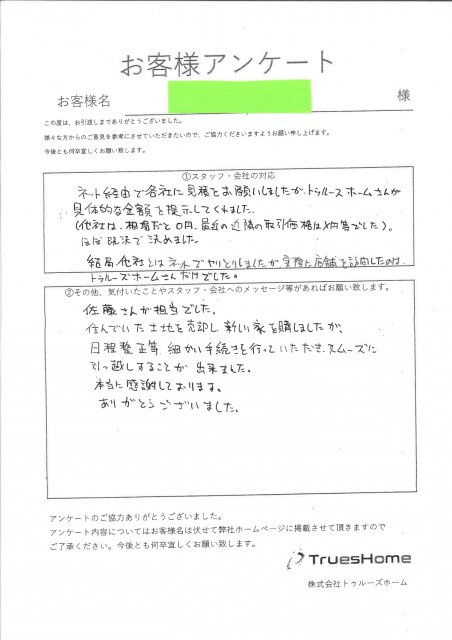 お客様アンケート
お客様名
様
この度は、お引渡しまでありがとうございました。
様々な方からのご意見を参考にさせていただきたいので、ご協力くださいますようお願い申し上げます。
今後とも何卒宜しくお願い致します。
①スタッフ・会社の対応
ネット経由で各社に見積をお願いしましたが、トゥルーズホームさんが
具体的な金額を提示してくれました。
(他社は、相場だと〇円、最近の近隣の取引価格は〆円等でした)。
ほぼ即決で決めました。
結局、他社とはネットでやりとりしましたが実際に店舗を訪問したのは、
トゥルーズホームさんだけでした。
②その他、気付いたことやスタッフ・会社へのメッセージ等があればお願い致します。
佐藤さんが担当でした。
住んでいた土地を売却し、新しい家を購しましたが、
日程整正等、細かい手続きを行っていただき、スムーズに
引っ越しすることが出来ました。
本当に感謝しております。
ありがとうございました。
アンケートのご協力ありがとうございました。
アンケート内容についてはお客様名は伏せて弊社ホームページに掲載させて頂きますので
ご了承ください。今後とも何卒宜しくお願い致します。
TruesHome
株式会社トゥルーズホーム